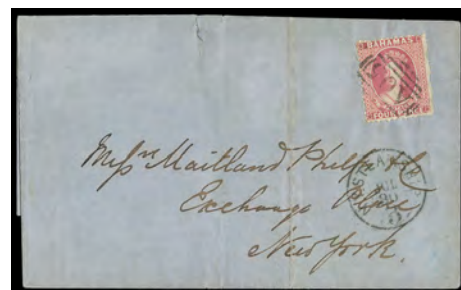 BAHAMAS
FOURPENCE
Messrs Maitland Phelps & Co
Exchange Place
New York.
STEAMSHIP
JUL